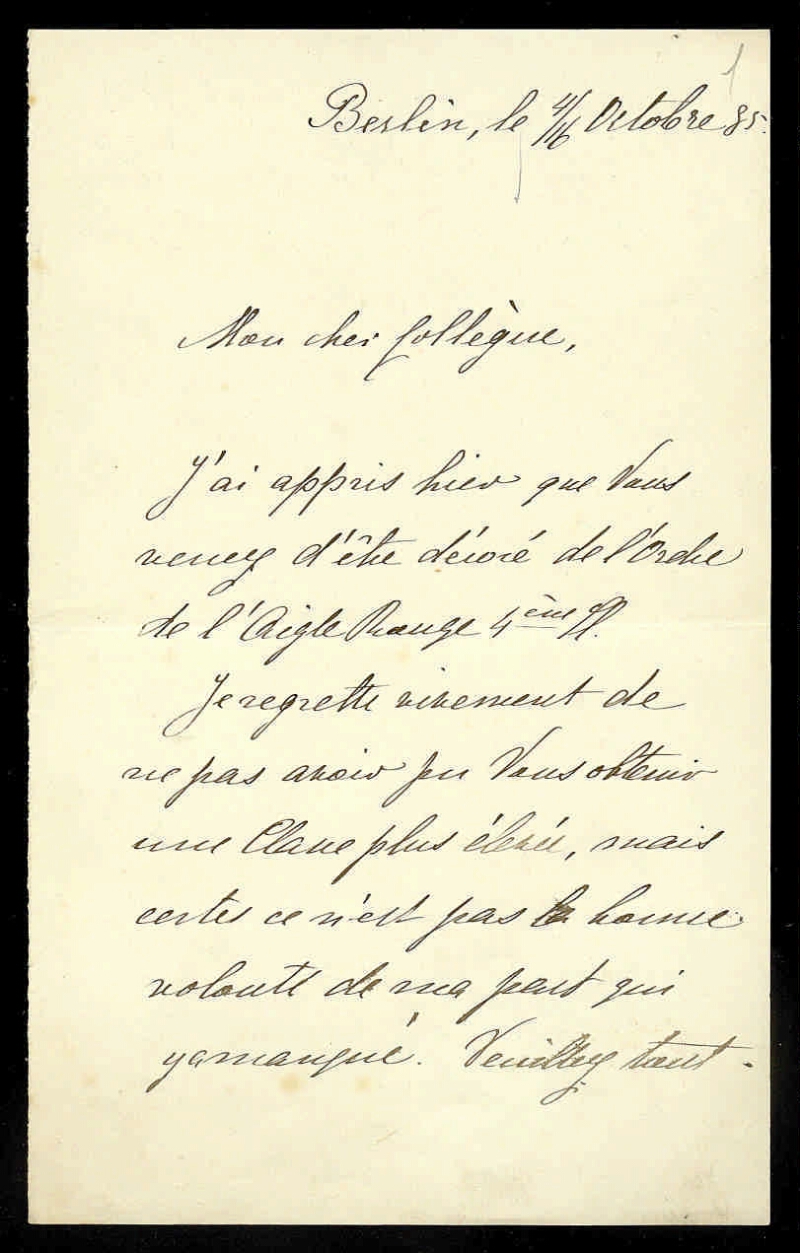 1
Berlin, le 4/16 Octobre 85.
Mon cher Collègue,
J'ai appris hier que Vous
venez d'être décoré de l'Ordre
de l'Aigle Rouge 4ème Cl.
Je regrette vivement de
ne pas avoir pu Vous obtenir
une Classe plus élevée, mais
certes ce n'est pas la bonne
volonté de ma part qui
y a manqué. Veuillez tout-